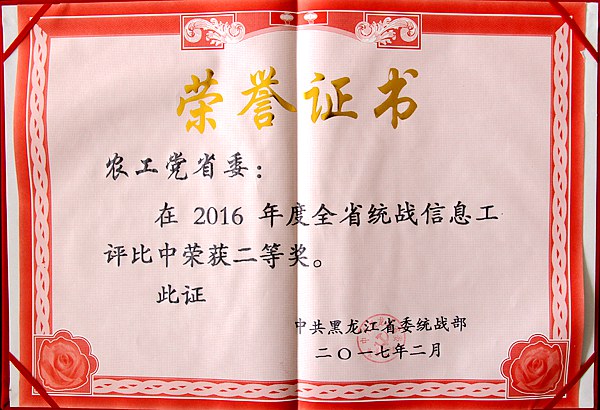 荣誉证书
农工党省委：
在 2016 年度全省统战信息工
评比中荣获二等奖。
此证
中共黑龙江省委统战部
二〇一七年二月